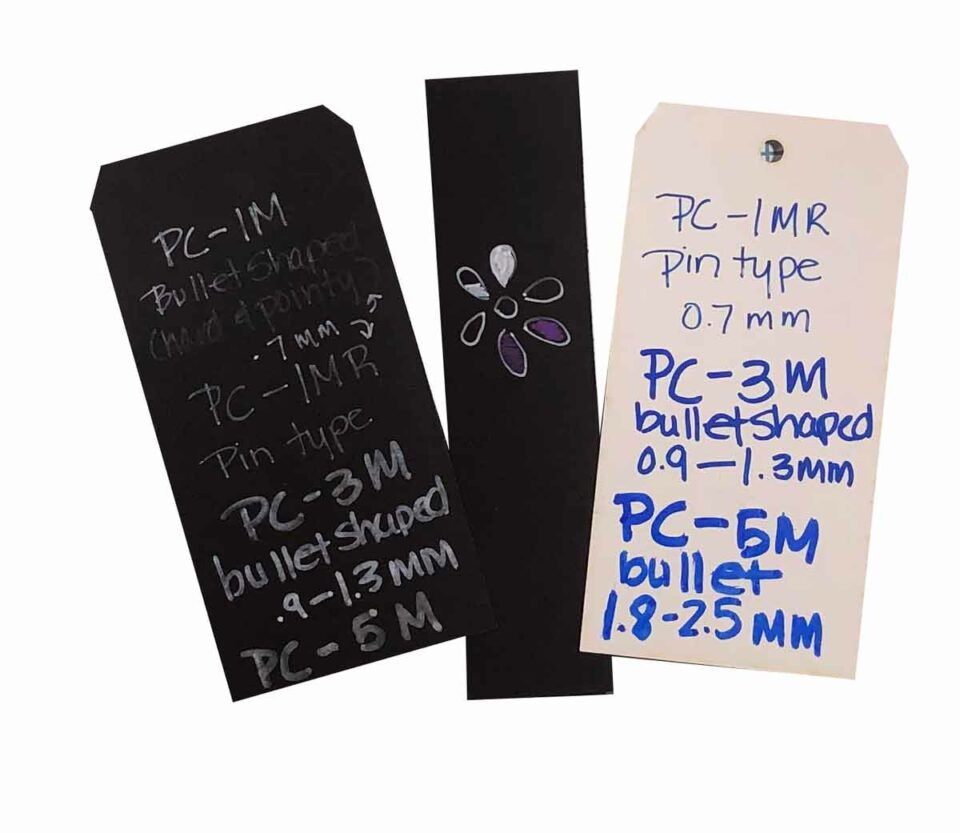 PC-1M
Bullet Shaped
(hard & pointy)
.7mm
PC-1MR
Pin type
PC-3M
bullet shaped
.9-1.3MM
PC-5M
PC-1MR
Pin type
0.7mm
PC-3M
bullet shaped
0.9-1.3MM
PC-5M
bullet
1.8-2.5MM